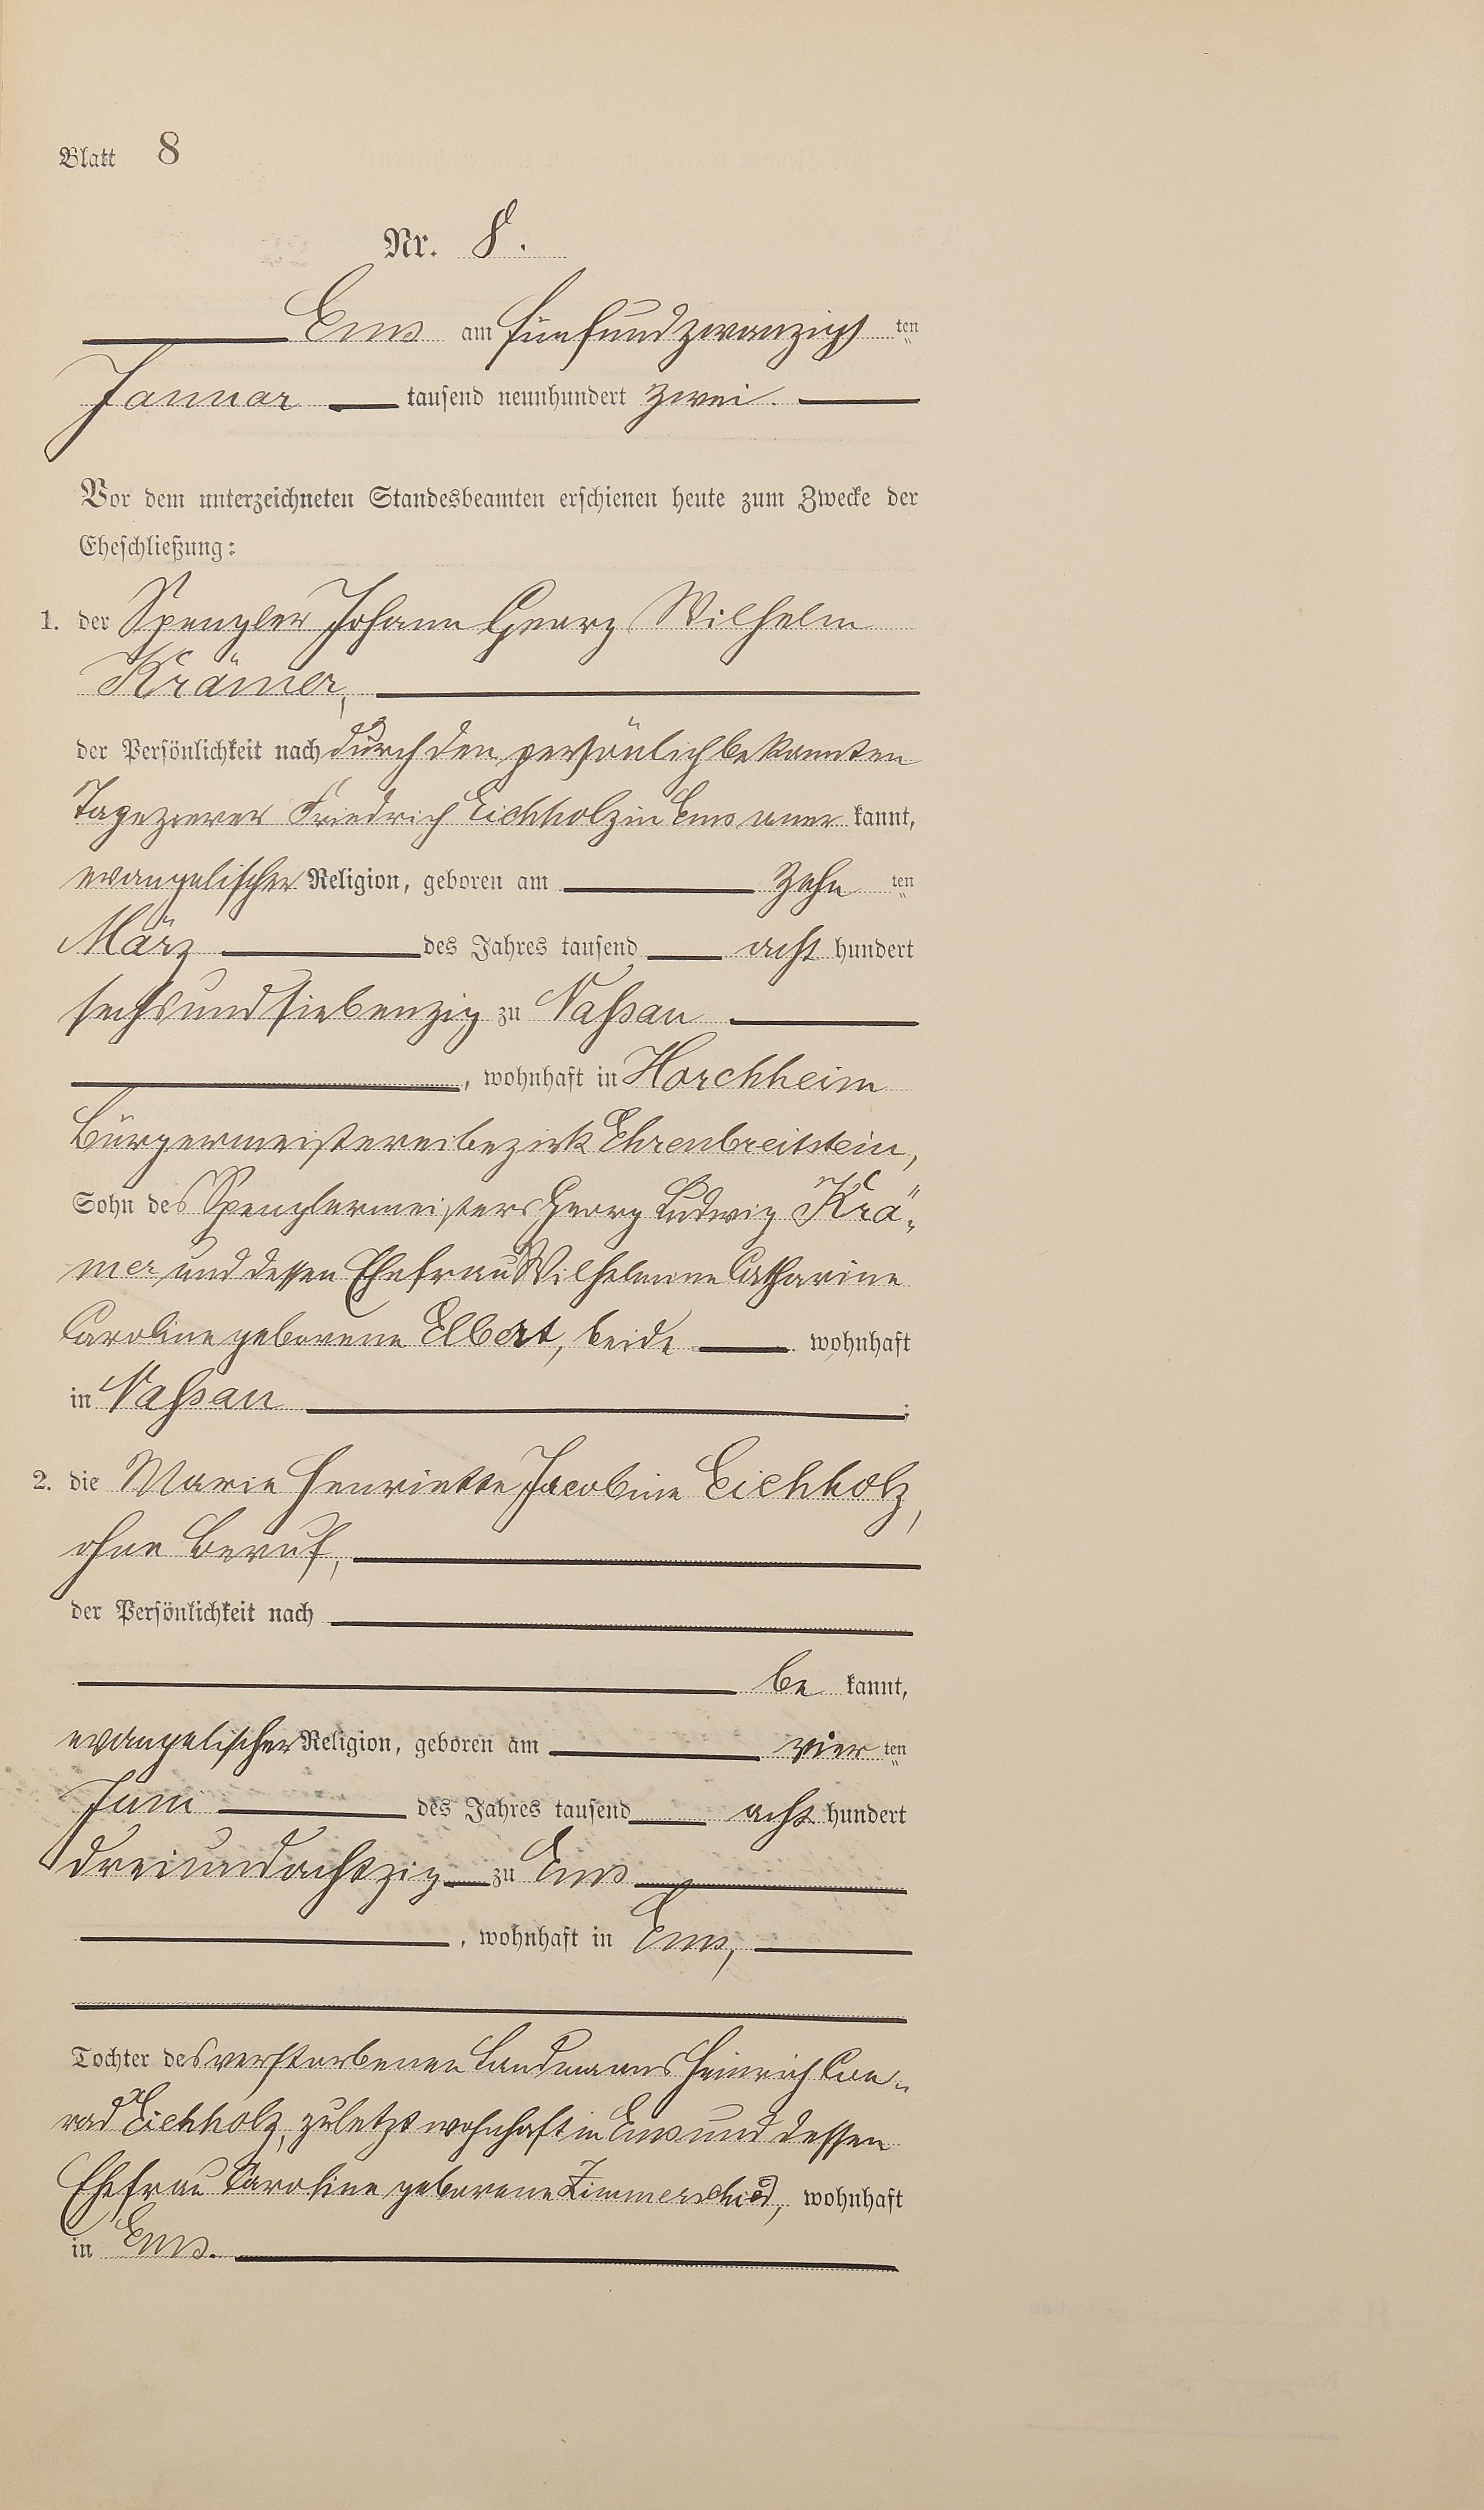 Blatt 8
Nr. 8.
Ems am fünfundzwanzigs ten
Januar tausend neunhundert zwei.
Vor dem unterzeichneten Standesbeamten erschienen heute zum Zwecke der
Eheschließung:
1. der Spengler Johann Georg Wilhelm
Krämer,
der Persönlichkeit nach durch den persönlich bekannten
Tapezierer Friedrich Eichholz in Ems aner kannt,
evangelischer Religion, geboren am zehn ten
März des Jahres tausend acht hundert
sechsundsiebenzig zu Naßau
, wohnhaft in Horchheim
Bürgermeistereibezirk Ehrenbreitstein,
Sohn des Spenglermeisters Georg Ludwig Krä-
mer und dessen Ehefrau Wilhelmine Catharine
Caroline geborene Elbert, beide wohnhaft
in Naßau ;
2. die Marie Henriette Jacobine Eichholz,
ohne Beruf,
der Persönlichkeit nach
be kannt,
evangelischer Religion, geboren am vier ten
Juni des Jahres tausend acht hundert
dreiundachtzig zu Ems
, wohnhaft in Ems,
Tochter des verstorbenen Landmanns Heinrich Con-
rad Eichholz, zuletzt wohnhaft in Ems und dessen
Ehefrau Caroline geborene Zimmerschied, wohnhaft
in Ems.